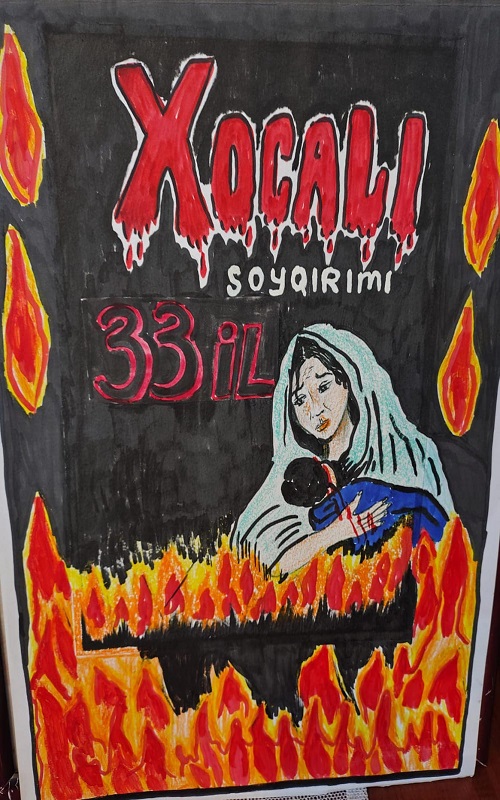 XOCALI
SOYQIRIMI
33 iL